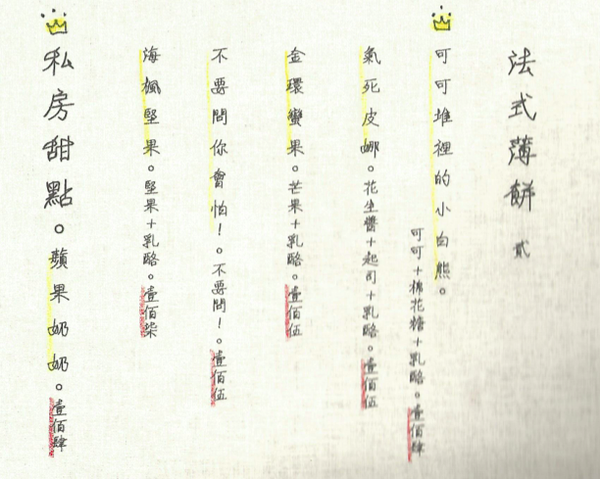 法式薄餅 貳
可可堆裡的小白熊。
可可+棉花糖+乳酪。壹佰肆
氣死皮娜。花生醬+起司+乳酪。壹佰伍
金環蠻果。芒果+乳酪。壹佰伍
不要問你會怕!。不要問!。壹佰伍
海楓堅果。堅果+乳酪。壹佰柒
私房甜點。蘋果奶奶。壹佰肆